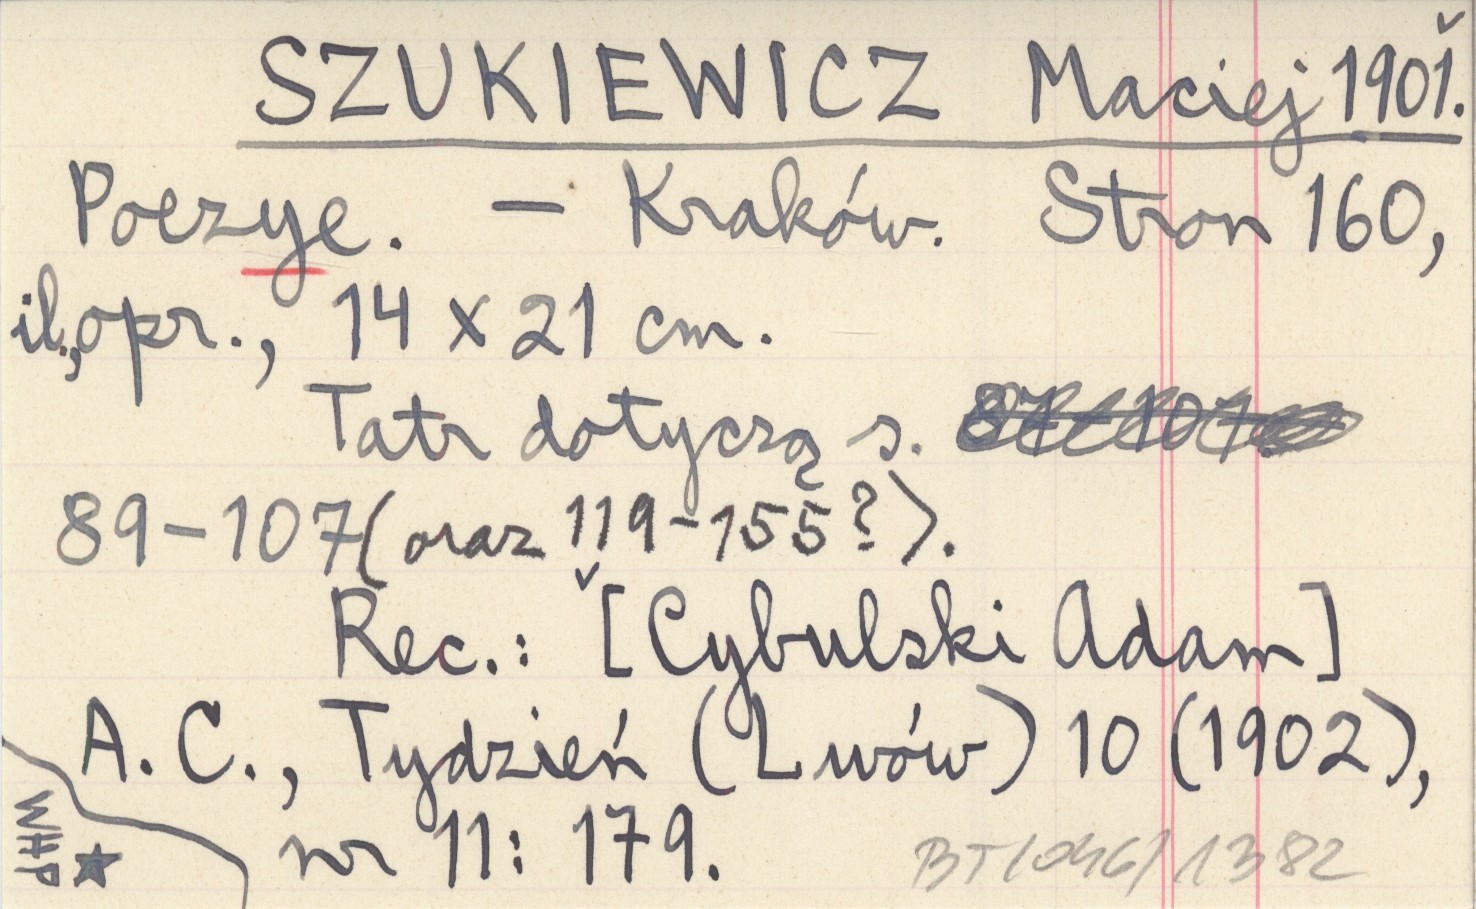 SZUKIEWICZ Maciej 1901.
Poezye. – Kraków. Stron 160,
il., opr., 14 x 21 cm.
Tatr dotyczą s.
89–107 (oraz 119–155?).
Rec.: [Cybulski Adam]
A. C., Tydzień (Lwów) 10 (1902),
nr 11: 179.
WHP
BT/046/1382